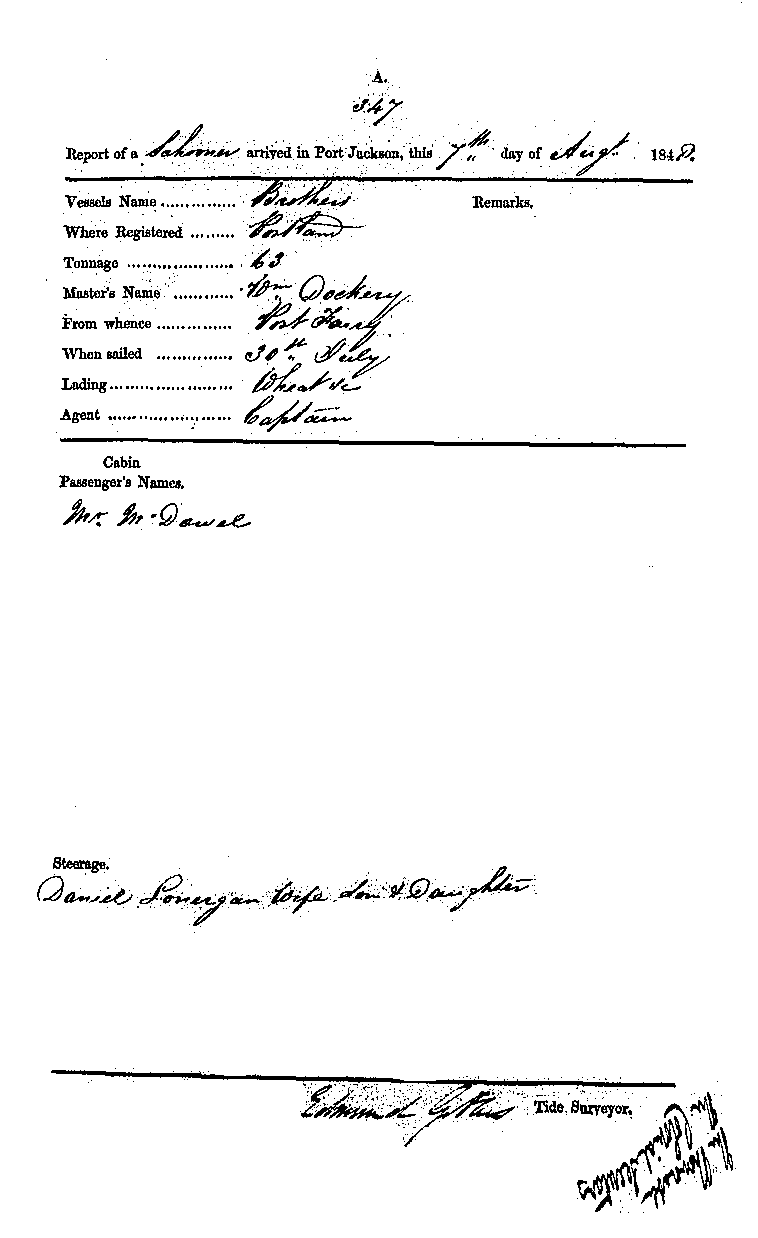 A.
347
Report of a Schooner arrived in Port Jackson, this 7th day of Augt. 1848.
Vessels Name .............. Brothers
Remarks.
Where Registered ......... Portland
Tonnage .................... 63
Master's Name ............ Wm Dockery
From whence ............... Port Fairy
When sailed ............... 30th July
Lading........................ Wheat &c
Agent ........................ Captain
Cabin
Passenger's Names.
Mr. McDowel
Steerage.
Daniel Lonergan Wife Son & Daughter
Edmund Tide Surveyor.